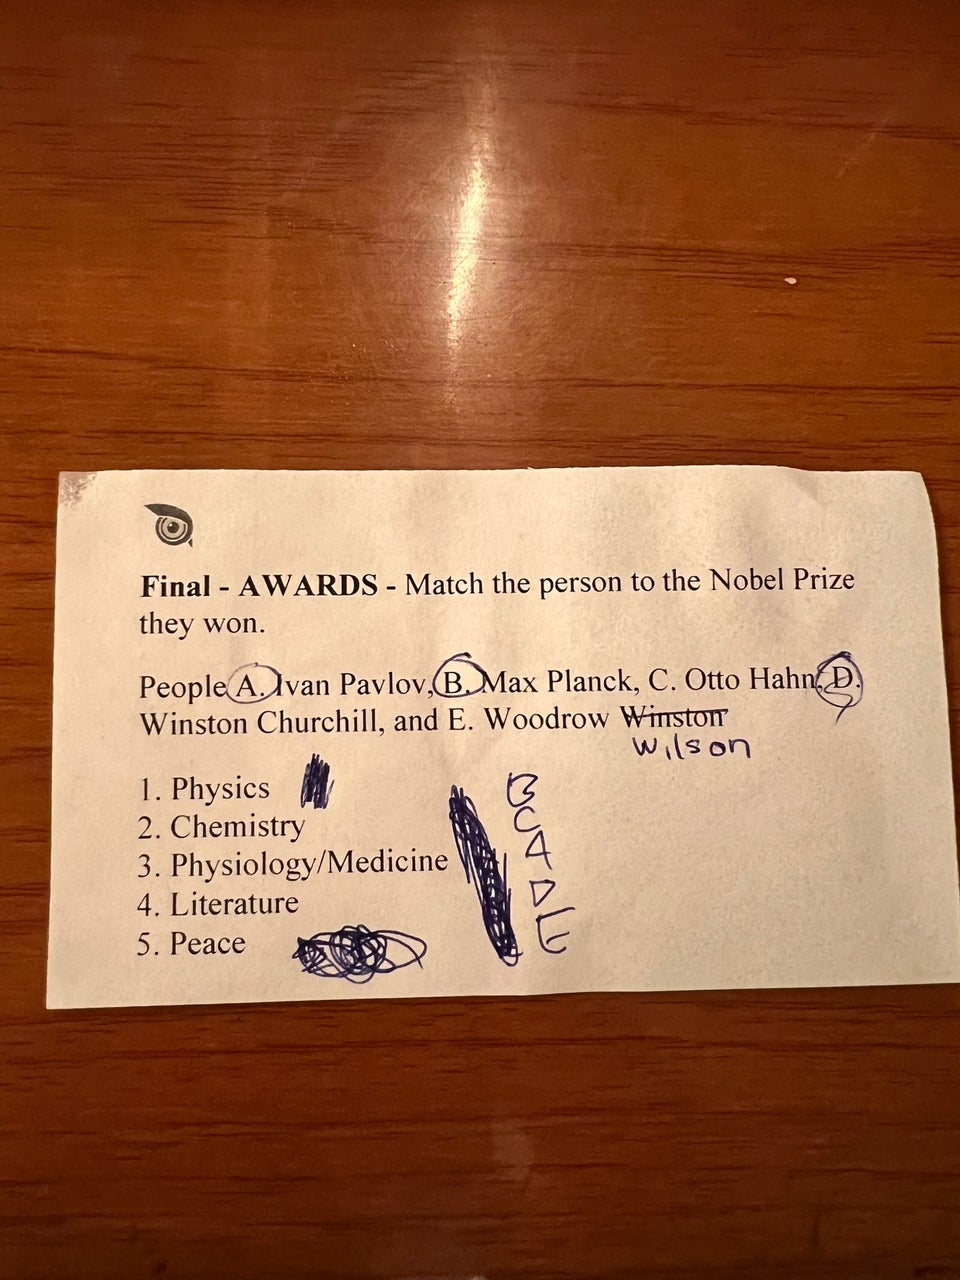 Final - AWARDS - Match the person to the Nobel Prize
they won.
People A. Ivan Pavlov, B. Max Planck, C. Otto Hahn, D.
Winston Churchill, and E. Woodrow Winston
Wilson
1. Physics B
2. Chemistry C
3. Physiology/Medicine A
4. Literature D
5. Peace E